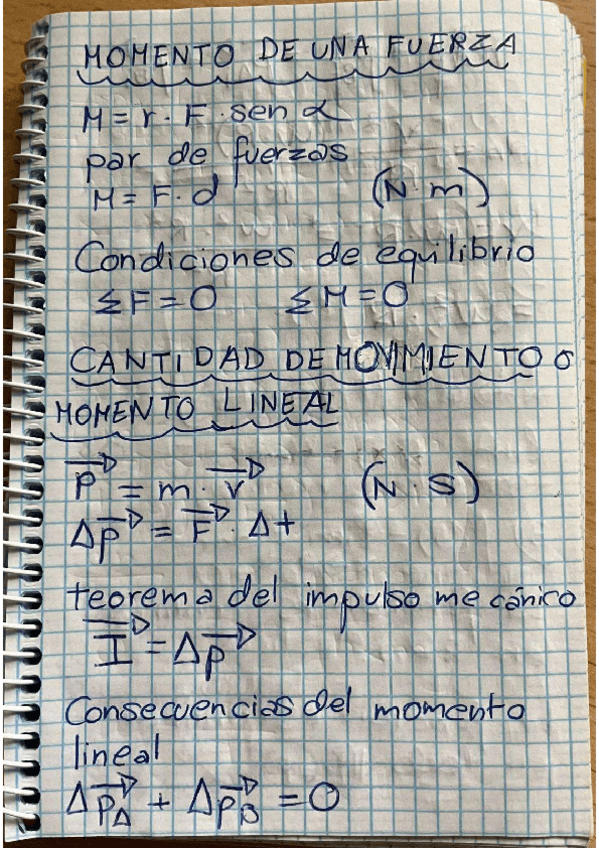 MOMENTO DE UNA FUERZA
M = r · F · sen α
par de fuerzas
M = F · d (N · m)
Condiciones de equilibrio
ΣF = 0 ΣM = 0
CANTIDAD DE MOVIMIENTO o
MOMENTO LINEAL
p⃗ = m · v⃗ (N · s)
Δp⃗ = F⃗ · Δt
teorema del impulso mecánico
I⃗ = Δp⃗
Consecuencias del momento
lineal
Δp⃗_A + Δp⃗_B = 0